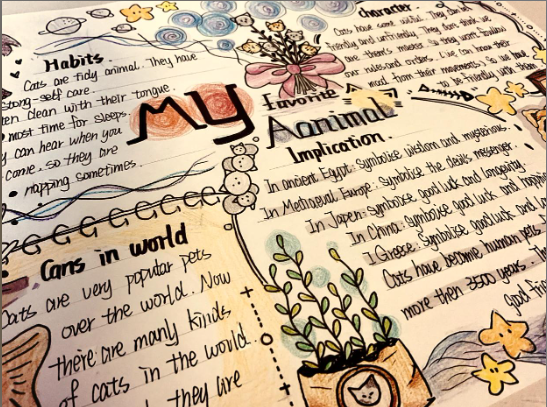 Habits
Cats are tidy animal. They have
strong self care.
ten clean with their tongue.
most time for sleeps.
can hear when you
come, so they are
napping sometimes.
Character
Cats have
friendly and unfriendly. They
our rules and orders.
mood from their movements. So we have
be friendly with them
My
Favorite
Aanimal
Implication.
In ancient Egypt: symbolise wisdom and mysterious.
In Metiaeval Europe: symbolise the devil's messenger.
In Japen: symbolise good luck and longevity.
In China: symbolise good luck and happine
I Greese: Symbolise good luck and lo
Cats have become human pets
more then 3500 years. The
good frie
Cans in world
Cats are very popular pets
over the world. Now
there are many kinds
of cats in the world.
they are